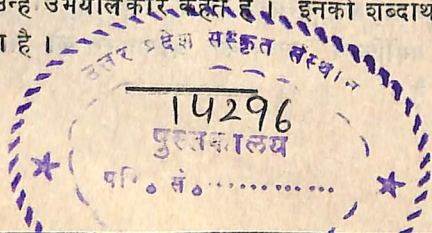 उन्हें उभयालंकार कहते हैं। इनको शब्दार्थ
है।
उत्तर प्रदेश संस्कृत संस्थान
14296
पुस्तकालय
परि० सं०..............